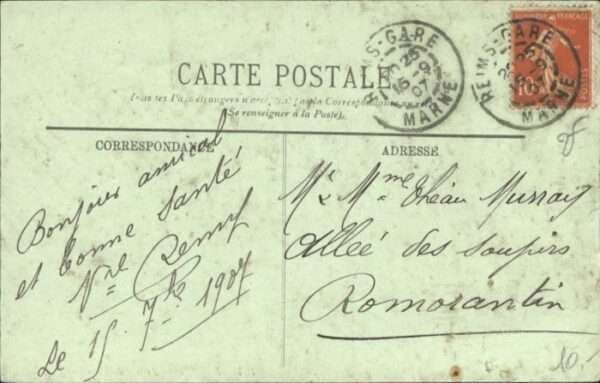 CARTE POSTALE
Tous les Pays étrangers n'acceptent pas la Correspondance
(Se renseigner à la Poste).
CORRESPONDANCE
ADRESSE
REIMS-GARE
MARNE
REIMS-GARE
MARNE
10
Bonjour amical
et bonne santé
Remy
Le 15 7bre 1907
Mr & Mme
Allée des Soupirs
Romorantin
10.-